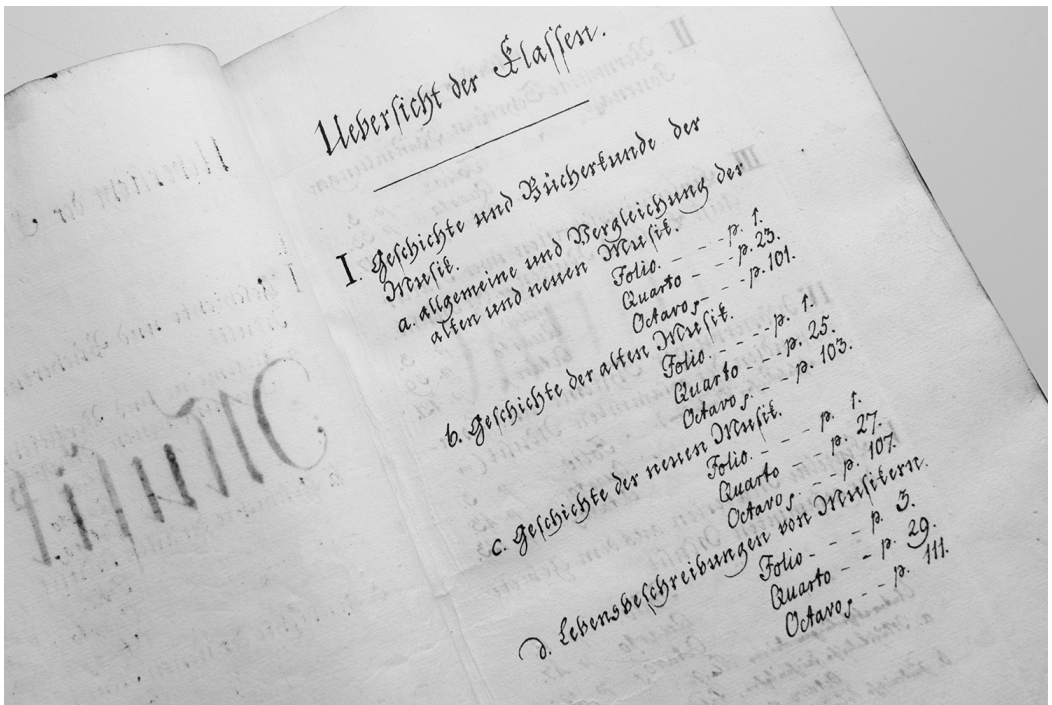 Uebersicht der Klassen.
I. Geschichte und Bücherkunde der
Musik.
a. allgemeine und Vergleichung der
alten und neuen Musik.
Folio. - - - p. 1.
Quarto - - - p. 23.
Octavo - - - p. 101.
b. Geschichte der alten Musik.
Folio. - - - p. 1.
Quarto - - - p. 25.
Octavo - - - p. 103.
c. Geschichte der neuen Musik.
Folio. - - - p. 1.
Quarto - - - p. 27.
Octavo - - - p. 107.
d. Lebensbeschreibungen von Musikern.
Folio - - - p. 3.
Quarto - - - p. 29.
Octavo - - - p. 111.